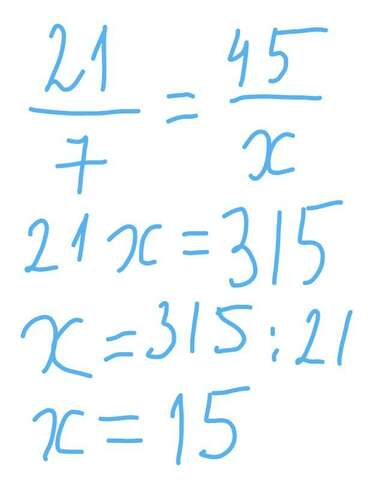 21/7 = 45/x
21x = 315
x = 315 : 21
x = 15